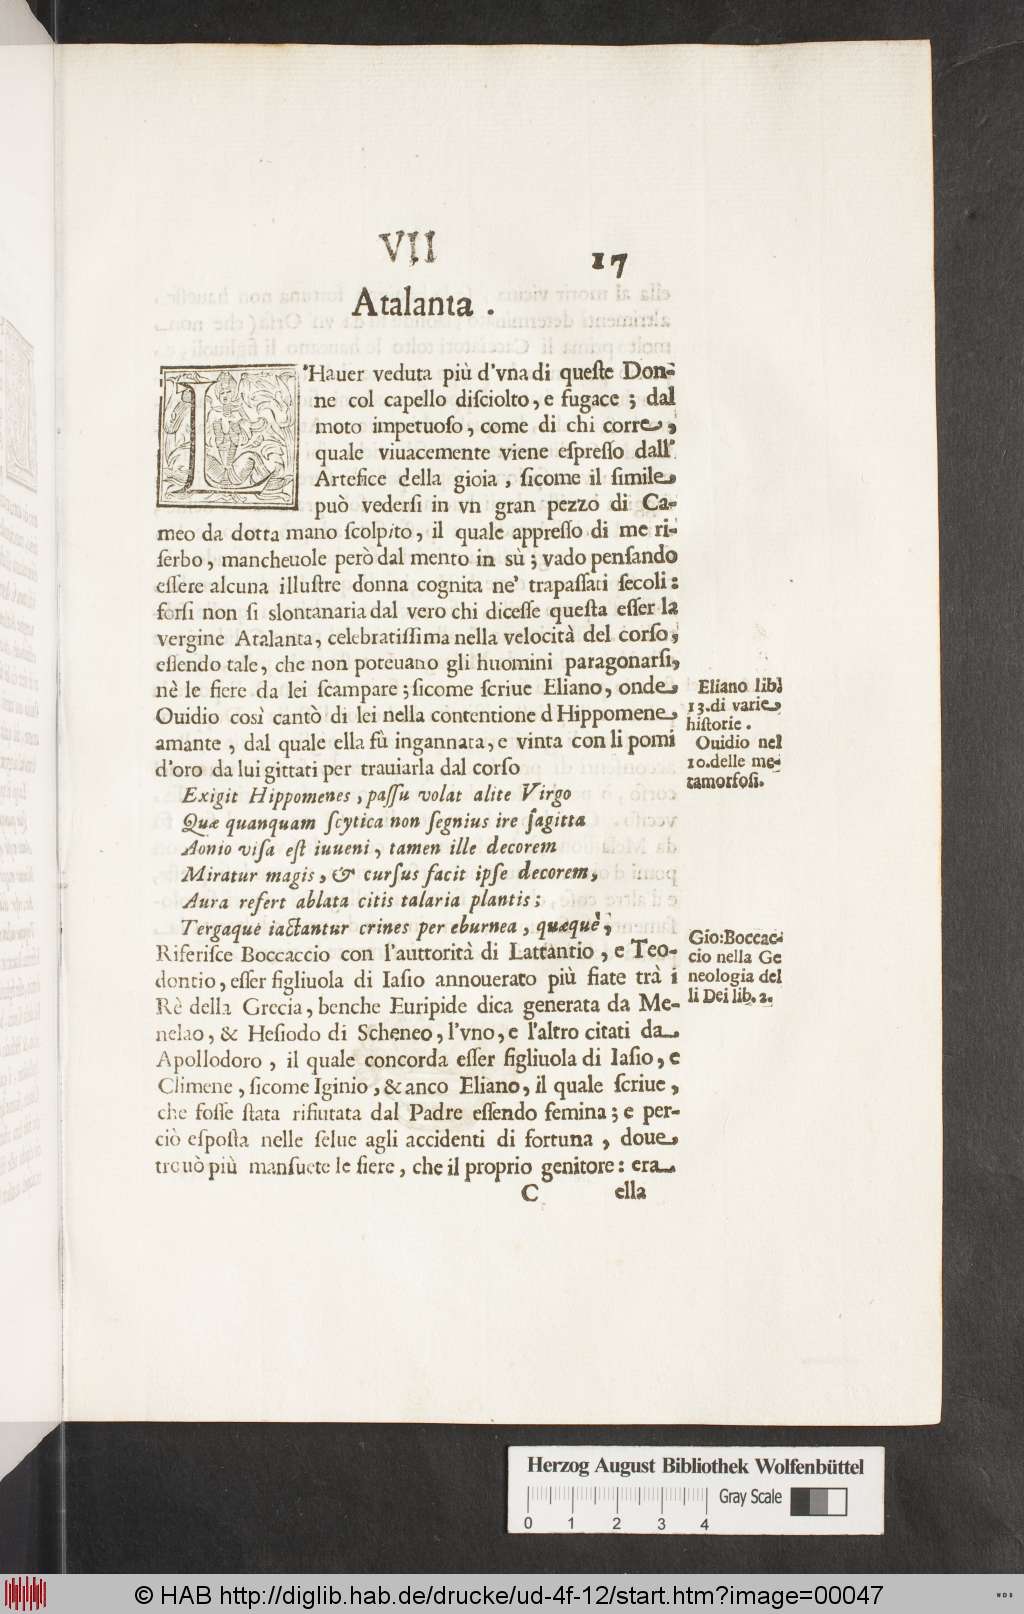 VII
17
Atalanta.
L'Hauer veduta più d'vna di queste Don-
ne col capello disciolto, e fugace; dal
moto impetuoso, come di chi corre,
quale viuacemente viene espresso dall'
Artefice della gioia, sicome il simile
può vedersi in vn gran pezzo di Ca-
meo da dotta mano scolpito, il quale appresso di me ri-
serbo, mancheuole però dal mento in sù; vado pensando
essere alcuna illustre donna cognita ne' trapassati secoli:
forsi non si slontanaria dal vero chi dicesse questa esser la
vergine Atalanta, celebratissima nella velocità del corso,
essendo tale, che non poteuano gli huomini paragonarsi,
nè le fiere da lei scampare; sicome scriue Eliano, onde
Ouidio così cantò di lei nella contentione d Hippomene
amante, dal quale ella fù ingannata, e vinta con li pomi
d'oro da lui gittati per trauiarla dal corso
Exigit Hippomenes, passu volat alite Virgo
Quæ quanquam scytica non segnius ire sagitta
Aonio visa est iuueni, tamen ille decorem
Miratur magis, & cursus facit ipse decorem,
Aura refert ablata citis talaria plantis;
Tergaque iactantur crines per eburnea, quæquè,
Riferisce Boccaccio con l'auttorità di Lattantio, e Teo-
dontio, esser figliuola di Iasio annouerato più fiate trà i
Rè della Grecia, benche Euripide dica generata da Me-
nelao, & Hesiodo di Scheneo, l'vno, e l'altro citati da
Apollodoro, il quale concorda esser figliuola di Iasio, e
Climene, sicome Iginio, & anco Eliano, il quale scriue,
che fosse stata rifiutata dal Padre essendo femina; e per-
ciò esposta nelle selue agli accidenti di fortuna, doue
trouò più mansuete le fiere, che il proprio genitore: era
C ella
Eliano lib.
13. di varie
historie.
Ouidio nel
10. delle me-
tamorfosi.
Gio: Boccac-
cio nella Ge
neologia del
li Dei lib. 2.
Herzog August Bibliothek Wolfenbüttel
Gray Scale
0 1 2 3 4
© HAB http://diglib.hab.de/drucke/ud-4f-12/start.htm?image=00047